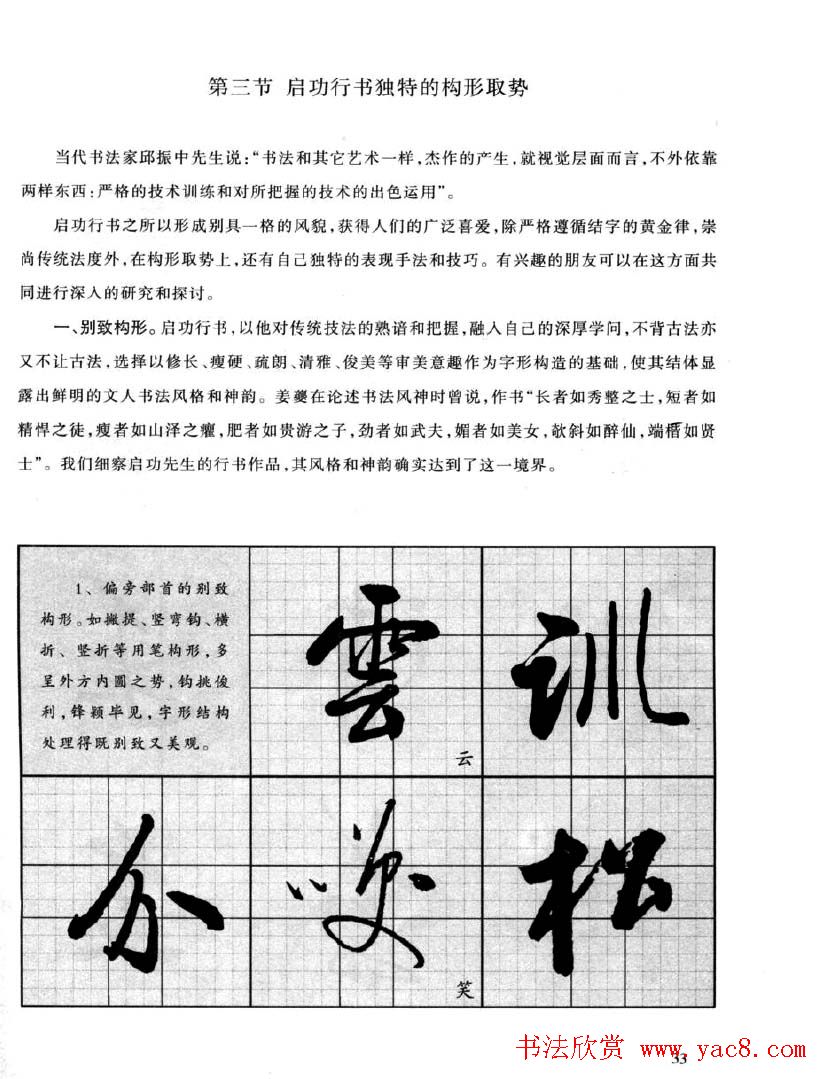 第三节 启功行书独特的构形取势
当代书法家邱振中先生说:“书法和其它艺术一样,杰作的产生,就视觉层面而言,不外依靠
两样东西:严格的技术训练和对所把握的技术的出色运用”。
启功行书之所以形成别具一格的风貌,获得人们的广泛喜爱,除严格遵循结字的黄金律,崇
尚传统法度外,在构形取势上,还有自己独特的表现手法和技巧。有兴趣的朋友可以在这方面共
同进行深入的研究和探讨。
一、别致构形。启功行书,以他对传统技法的熟谙和把握,融入自己的深厚学问,不背古法亦
又不让古法,选择以修长、瘦硬、疏朗、清雅、俊美等审美意趣作为字形构造的基础,使其结体显
露出鲜明的文人书法风格和神韵。姜夔在论述书法风神时曾说,作书“长者如秀整之士,短者如
精悍之徒,瘦者如山泽之癯,肥者如贵游之子,劲者如武夫,媚者如美女,欹斜如醉仙,端楷如贤
士”。我们细察启功先生的行书作品,其风格和神韵确实达到了这一境界。
1、偏旁部首的别致
构形。如撇提、竖弯钩、横
折、竖折等用笔构形,多
呈外方内圆之势,钩挑俊
利,锋颖毕见,字形结构
处理得既别致又美观。
雲
云
训
分
笑
松
书法欣赏 www.yac8.com
33